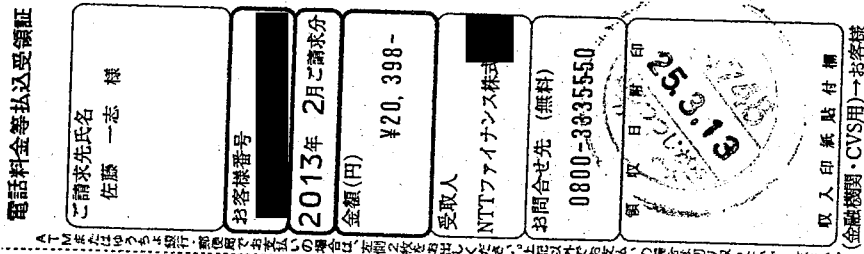 電話料金等払込受領証
ご請求先氏名
佐藤 一志 様
お客様番号
2013年 2月ご請求分
金額(円)
¥20,398-
受取人
NTTファイナンス株式
お問合せ先 (無料)
0800-3335550
領収日附印
25.3.13
収入印紙貼付欄
(金融機関・CVS用)→お客様
ATMまたはゆうちょ銀行・郵便局でお支払いの場合は、左側2枚をお出しください。